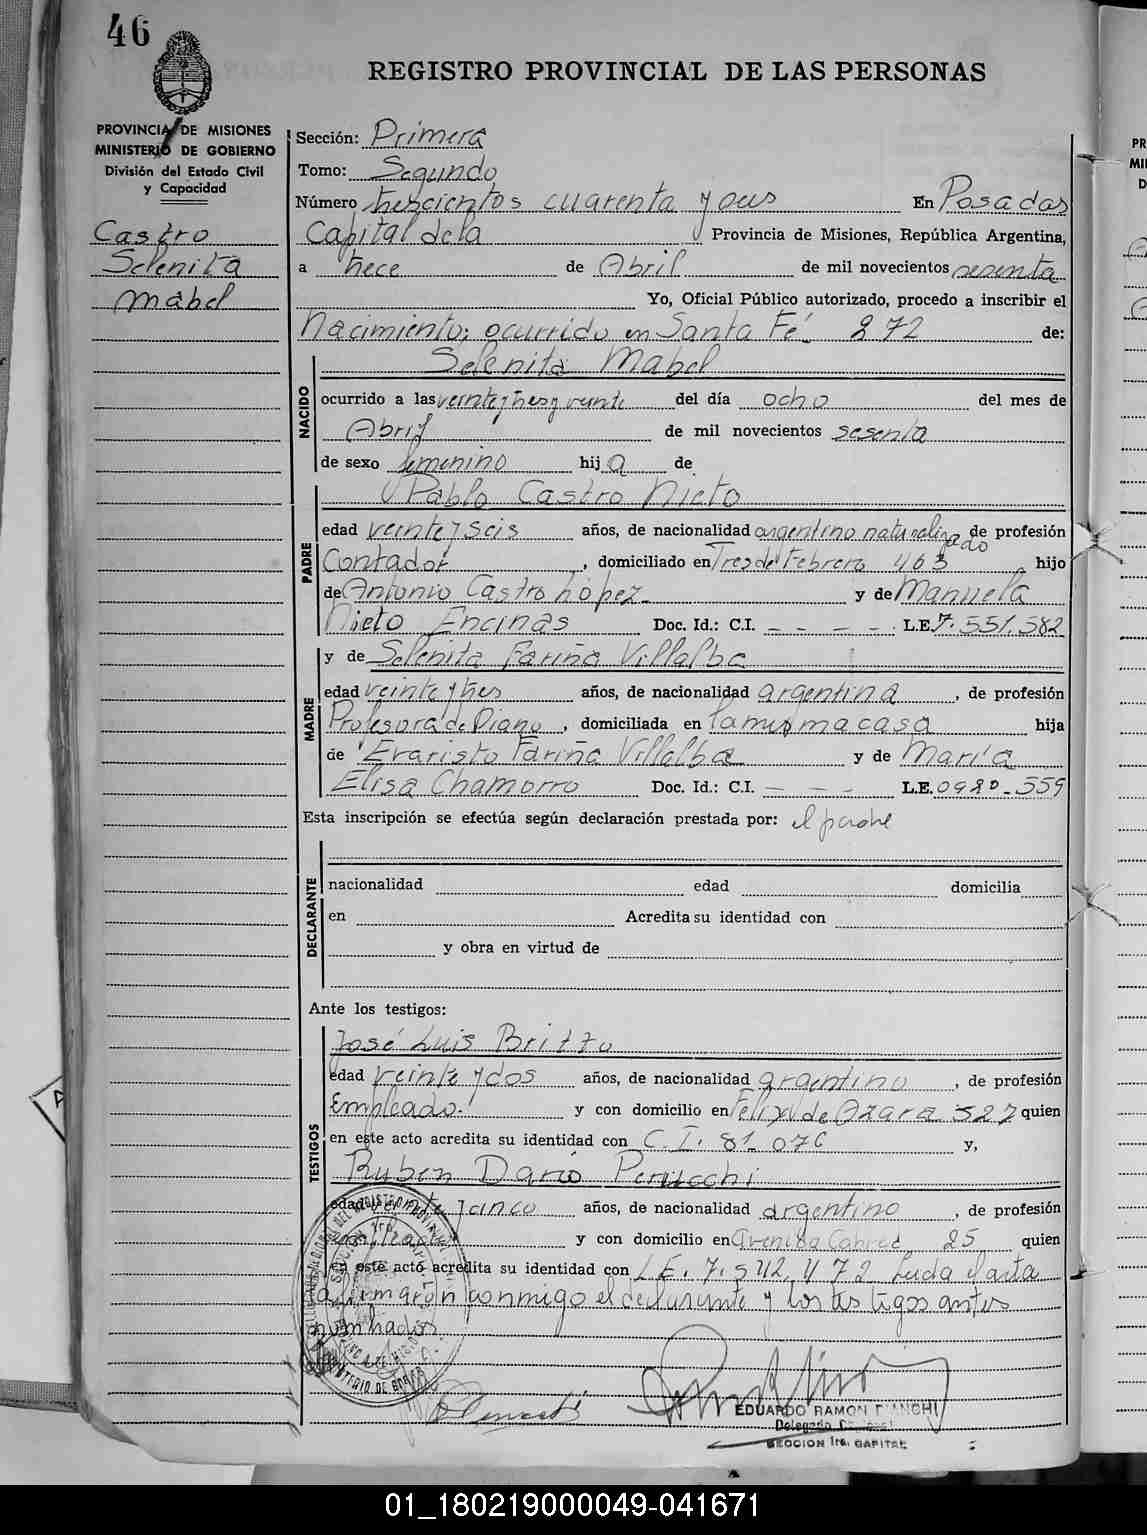 46
REGISTRO PROVINCIAL DE LAS PERSONAS
PROVINCIA DE MISIONES
MINISTERIO DE GOBIERNO
División del Estado Civil
y Capacidad
Castro
Selenita
Mabel
Sección: Primera
Tomo: Segundo
Número trescientos cuarenta y dos En Posadas
Capital de la Provincia de Misiones, República Argentina,
a trece de Abril de mil novecientos sesenta
Yo, Oficial Público autorizado, procedo a inscribir el
Nacimiento; ocurrido en Santa Fé 272 de:
NACIDO
Selenita Mabel
ocurrido a las veinte y tres y veinte del día ocho del mes de
Abril de mil novecientos sesenta
de sexo femenino hija de
PADRE
Pablo Castro Nieto
edad veinte y seis años, de nacionalidad argentino naturalizado de profesión
Contador, domiciliado en Tres de Febrero 463 hijo
de Antonio Castro López y de Manuela
Nieto Encinas Doc. Id.: C.I. - - - - L.E. 7.551.582
MADRE
y de Selenita Fariña Villalba
edad veinte y tres años, de nacionalidad argentina, de profesión
Profesora de Piano, domiciliada en la misma casa hija
de Evaristo Fariña Villalba y de María
Elisa Chamorro Doc. Id.: C.I. - - - L.E. 0980-559
Esta inscripción se efectúa según declaración prestada por: el padre
DECLARANTE
nacionalidad edad domicilia
en Acredita su identidad con
y obra en virtud de
Ante los testigos:
TESTIGOS
José Luis Britto
edad veinte y dos años, de nacionalidad argentino, de profesión
Empleado. y con domicilio en Felix de Azara 527 quien
en este acto acredita su identidad con C.I. 81.076 y,
Ruben Darío Perucchi
edad veinte y cinco años, de nacionalidad argentino, de profesión
y con domicilio en Avenida Cabred 25 quien
en este acto acredita su identidad con L.E. 7.542.472 Leida el acta
la firmaron conmigo el declarante y los testigos antes
nombrados.
EDUARDO RAMON BIANCHI
Delegado
SECCION 1ra. CAPITAL
01_180219000049-041671